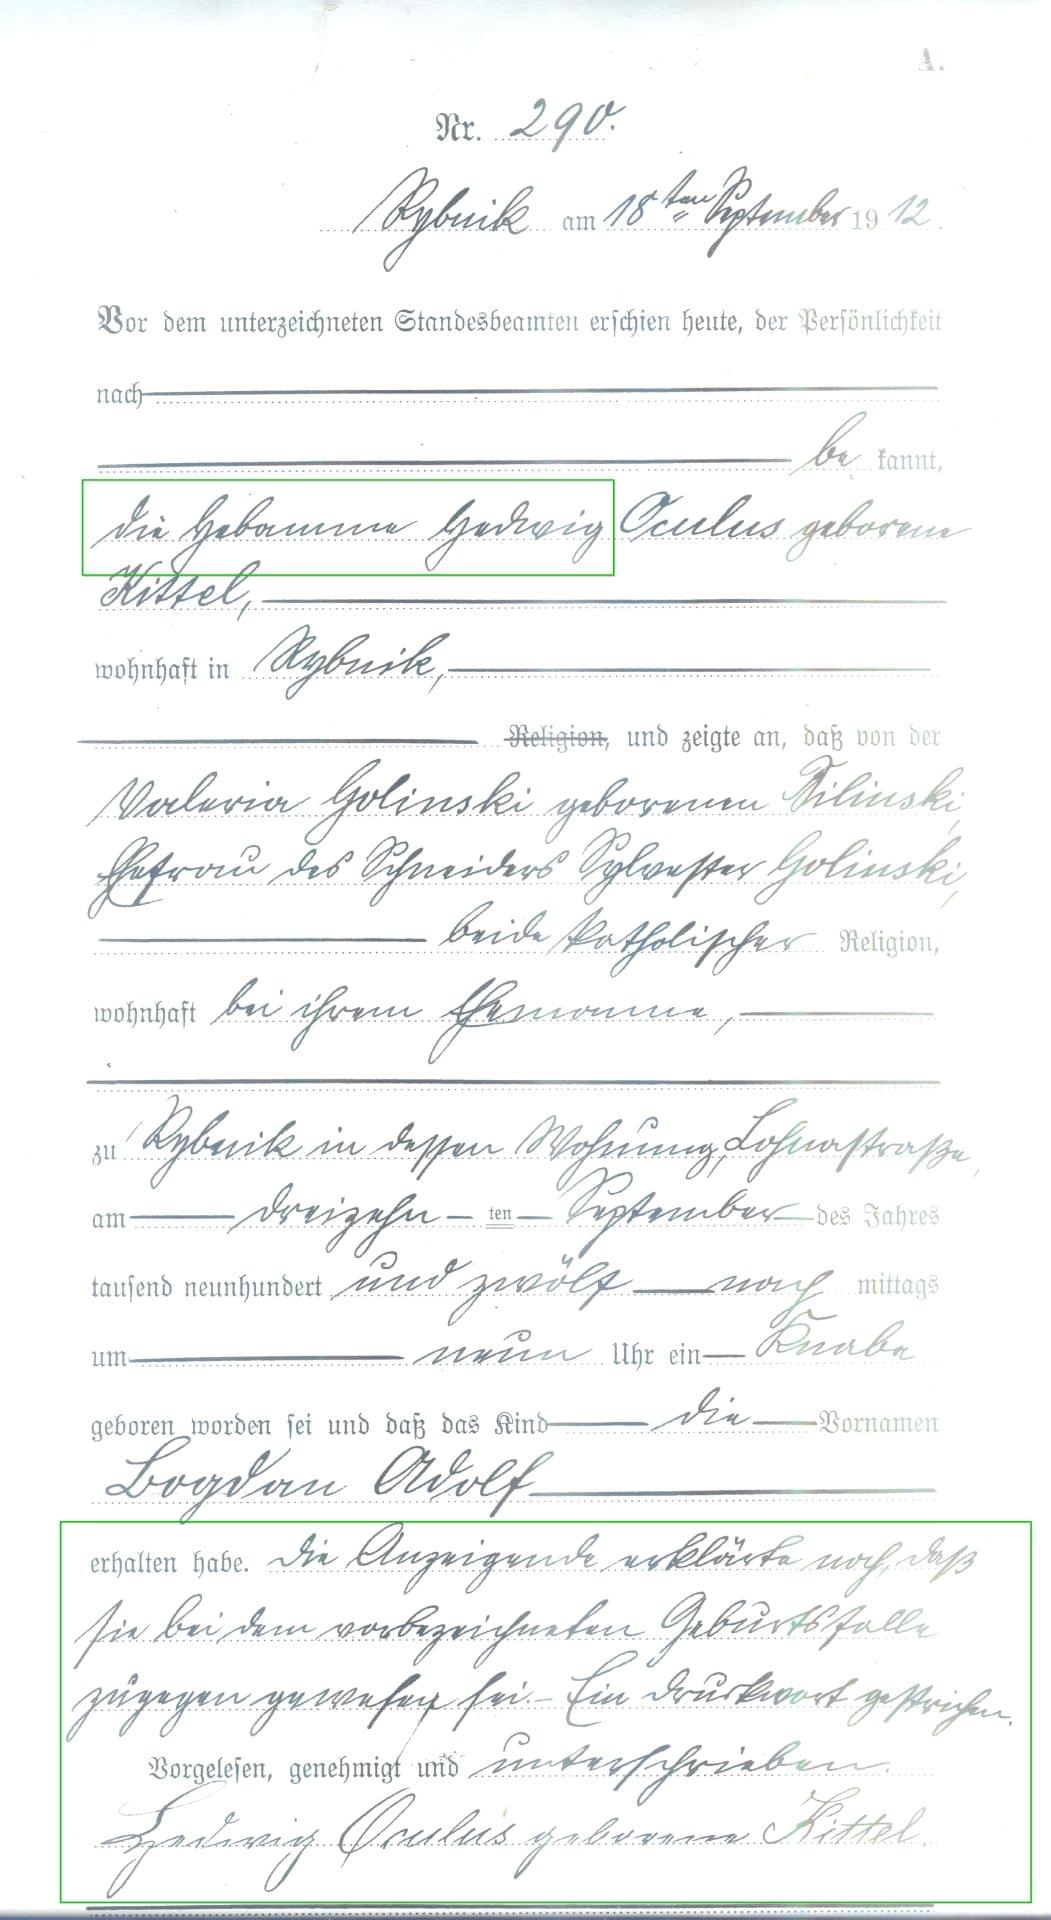 A.
Nr. 290.
Rybnik am 18ten September 1912.
Vor dem unterzeichneten Standesbeamten erschien heute, der Persönlichkeit
nach
be kannt,
die Hebamme Hedwig Oculus geborene
Kittel,
wohnhaft in Rybnik,
Religion, und zeigte an, daß von der
Valeria Golinski geborenen Filinski,
Ehefrau des Schneiders Sylvester Golinski,
beide katholischer Religion,
wohnhaft bei ihrem Ehemanne,
zu Rybnik in dessen Wohnung, Lohnastraße,
am dreizehn ten September des Jahres
tausend neunhundert und zwölf nach mittags
um neun Uhr ein Knabe
geboren worden sei und daß das Kind die Vornamen
Bogdan Adolf
erhalten habe. Die Anzeigende erklärte noch, daß
sie bei dem vorbezeichneten Geburtsfalle
zugegen gewesen sei. – Ein Druckwort gestrichen.
Vorgelesen, genehmigt und unterschrieben.
Hedwig Oculus geborene Kittel.